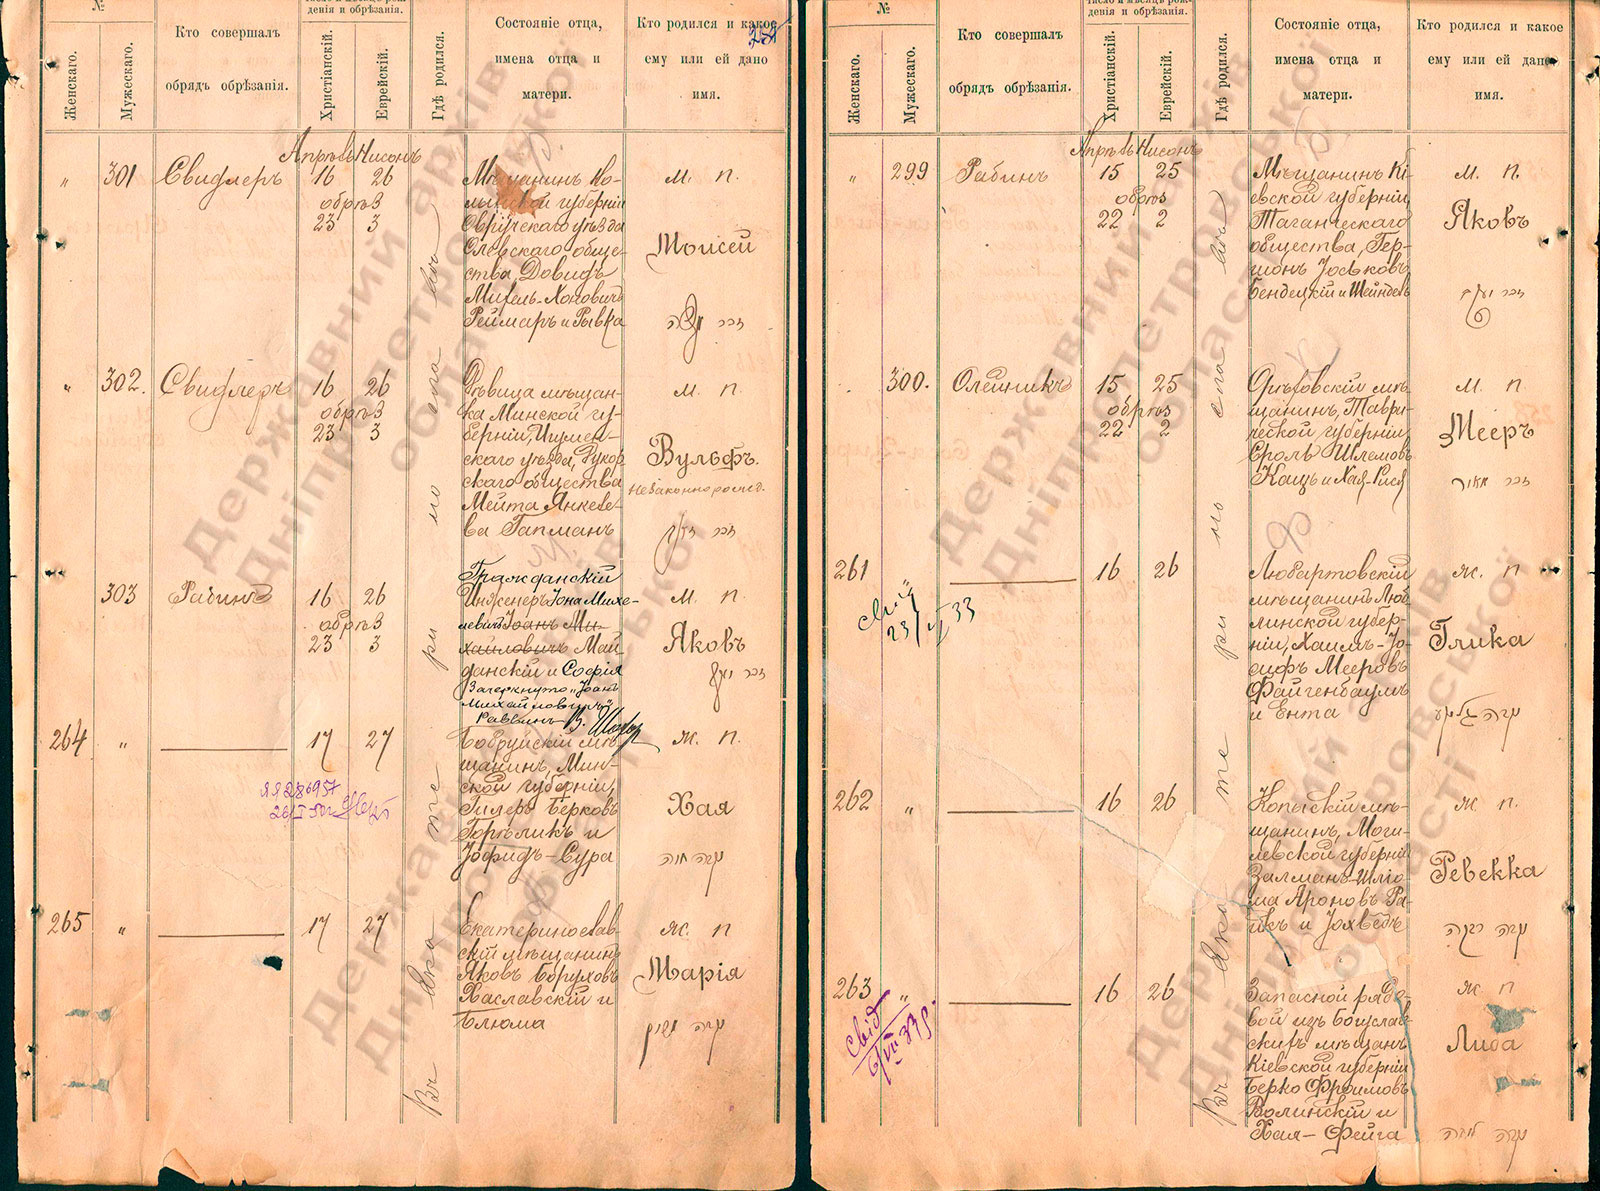 №
Число и мѣсяцъ рож-
денія и обрѣзанія.
Женскаго.
Мужескаго.
Кто совершалъ
обрядъ обрѣзанія.
Христіанскій.
Еврейскій.
Гдѣ родился.
Состояніе отца,
имена отца и
матери.
Кто родился и какое
ему или ей дано
имя.
Апрѣль Нисонъ
" 301 Свифлеръ 16 26
обрѣз
23 3
Мѣщанинъ Во-
лынской губерніи
Овручскаго уѣзда
Олевскаго обще-
ства, Довидъ
Михель-Хоновичъ
Реймаръ и Рывка
м. п.
Моисей
" 302. Свифлеръ 16 26
обрѣз
23 3
Дѣвица мѣщан-
ка Минской гу-
берніи, Игумен-
скаго уѣзда,
скаго общества
Мейта Янкеле-
ва Гапманъ
м. п
Вульфъ.
Незаконнорожд.
303 Рабинъ 16 26
обрѣз
23 3
Гражданскій
Инженеръ Іона Михе-
левичъ Іоанъ Ми-
хайловичъ Май-
данскій и Софія
Зачеркнуто "Іоанъ
Михайловичъ"
Раввинъ
м. п.
Яковъ
264 " 17 27
Бобруйскій мѣ-
щанинъ, Мин-
ской губерніи,
Гилеръ Берковъ
Горѣликъ и
Іофидъ-Сура
ж. п.
Хая
265 " 17 27
Екатеринослав-
скій мѣщанинъ
Яковъ Боруховъ
Хаславскій и
Блюма
ж. п
Марія
Въ Екатеринославѣ
№
Число и мѣсяцъ рож-
денія и обрѣзанія.
Женскаго.
Мужескаго.
Кто совершалъ
обрядъ обрѣзанія.
Христіанскій.
Еврейскій.
Гдѣ родился.
Состояніе отца,
имена отца и
матери.
Кто родился и какое
ему или ей дано
имя.
Апрѣль Нисонъ
" 299 Рабинъ 15 25
обрѣз
22 2
Мѣщанинъ Кі-
евской губерніи,
Таганческаго
общества, Гер-
шонъ Іоськовъ
Бендецкій и Шейндель
м. п.
Яковъ
300. Олейникъ 15 25
обрѣз
22 2
Орѣховскій мѣ-
щанинъ, Таври-
ческой губерніи
Сроль Шлемовъ
Кацъ и Хая-Рися
м. п
Мееръ
261 " 16 26
Любартовскій
мѣщанинъ Люб-
линской губер-
ніи, Хаимъ-Іо-
сифъ Мееровъ
Файгенбаумъ
и Ента
ж. п
Глика
262 " 16 26
Копыскій мѣ-
щанинъ, Моги-
левской губерніи
Залманъ-Шліо-
ма Ароновъ Ра-
бикъ и Іохведъ
ж п.
Ревекка
263 " 16 26
Запасной рядо-
вой изъ Богуслав-
скихъ мѣщанъ
Кіевской губерніи
Берко Фроимовъ
Волинскій и
Хая-Фейга
ж п
Либа
Въ Екатеринославѣ
Державний архів
Дніпропетровської
області